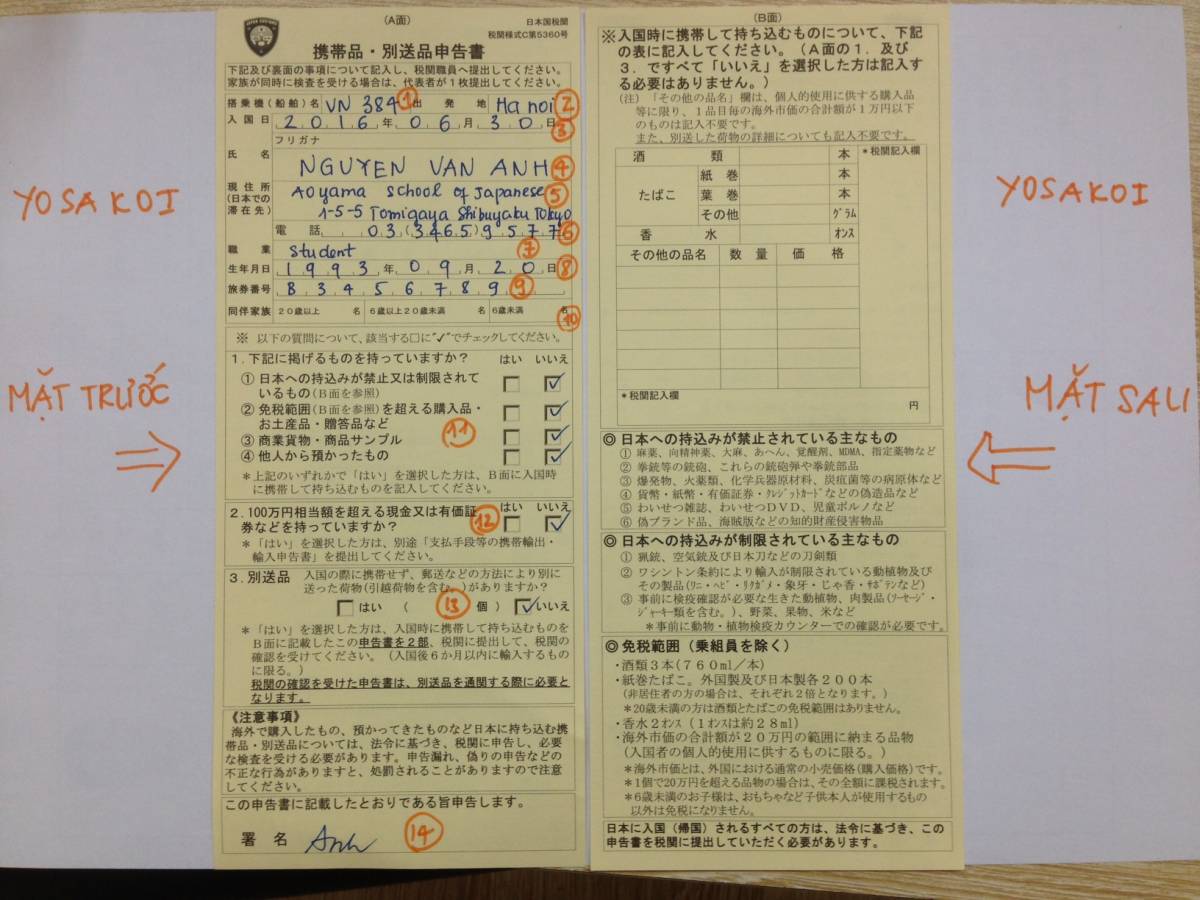 YOSAKOI
MẶT TRƯỚC
(A面)
日本国税関
税関様式C第5360号
携帯品・別送品申告書
下記及び裏面の事項について記入し、税関職員へ提出してください。
家族が同時に検査を受ける場合は、代表者が1枚提出してください。
搭乗機(船舶)名 VN 384 ① 出発地 Ha noi ②
入国日 2016年06月30日 ③
フリガナ
氏名 NGUYEN VAN ANH ④
現住所 Aoyama School of Japanese ⑤
(日本での
滞在先) 1-5-5 Tomigaya Shibuyaku Tokyo
電話 03(3465)9577 ⑥
職業 Student ⑦
生年月日 1993年09月20日 ⑧
旅券番号 B3456789 ⑨
同伴家族 20歳以上 名 6歳以上20歳未満 名 6歳未満 名 ⑩
※ 以下の質問について、該当する□に"✓"でチェックしてください。
1.下記に掲げるものを持っていますか? はい いいえ
① 日本への持込みが禁止又は制限されて
いるもの(B面を参照)
② 免税範囲(B面を参照)を超える購入品・
お土産品・贈答品など
③ 商業貨物・商品サンプル ⑪
④ 他人から預かったもの
*上記のいずれかで「はい」を選択した方は、B面に入国時
に携帯して持ち込むものを記入してください。
2.100万円相当額を超える現金又は有価証 ⑫ はい いいえ
券などを持っていますか?
*「はい」を選択した方は、別途「支払手段等の携帯輸出・
輸入申告書」を提出してください。
3.別送品 入国の際に携帯せず、郵送などの方法により別に
送った荷物(引越荷物を含む。)がありますか?
はい ( ⑬ 個) いいえ
*「はい」を選択した方は、入国時に携帯して持ち込むものを
B面に記載したこの申告書を2部、税関に提出して、税関の
確認を受けてください。(入国後6か月以内に輸入するもの
に限る。)
税関の確認を受けた申告書は、別送品を通関する際に必要と
なります。
《注意事項》
海外で購入したもの、預かってきたものなど日本に持ち込む携
帯品・別送品については、法令に基づき、税関に申告し、必要
な検査を受ける必要があります。申告漏れ、偽りの申告などの
不正な行為がありますと、処罰されることがありますので注意
してください。
この申告書に記載したとおりである旨申告します。
署名 Anh ⑭
(B面)
※入国時に携帯して持ち込むものについて、下記
の表に記入してください。(A面の1.及び
3.ですべて「いいえ」を選択した方は記入す
る必要はありません。)
(注)「その他の品名」欄は、個人的使用に供する購入品
等に限り、1品目毎の海外市価の合計額が1万円以下
のものは記入不要です。
また、別送した荷物の詳細についても記入不要です。
酒類 本 *税関記入欄
たばこ 紙巻 本
葉巻 本
その他 グラム
香水 オンス
その他の品名 数量 価格
*税関記入欄
円
◎日本への持込みが禁止されている主なもの
① 麻薬、向精神薬、大麻、あへん、覚醒剤、MDMA、指定薬物など
② 拳銃等の銃砲、これらの銃砲弾や拳銃部品
③ 爆発物、火薬類、化学兵器原材料、炭疽菌等の病原体など
④ 貨幣・紙幣・有価証券・クレジットカードなどの偽造品など
⑤ わいせつ雑誌、わいせつDVD、児童ポルノなど
⑥ 偽ブランド品、海賊版などの知的財産侵害物品
◎日本への持込みが制限されている主なもの
① 猟銃、空気銃及び日本刀などの刀剣類
② ワシントン条約により輸入が制限されている動植物及び
その製品(ワニ・ヘビ・リクガメ・象牙・じゃ香・サボテンなど)
③ 事前に検疫確認が必要な生きた動植物、肉製品(ソーセージ・
ジャーキー類を含む。)、野菜、果物、米など
*事前に動物・植物検疫カウンターでの確認が必要です。
◎免税範囲(乗組員を除く)
・酒類3本(760ml/本)
・紙巻たばこ。外国製及び日本製各200本
(非居住者の方の場合は、それぞれ2倍となります。)
*20歳未満の方は酒類とたばこの免税範囲はありません。
・香水2オンス(1オンスは約28ml)
・海外市価の合計額が20万円の範囲に納まる品物
(入国者の個人的使用に供するものに限る。)
*海外市価とは、外国における通常の小売価格(購入価格)です。
*1個で20万円を超える品物の場合は、その全額に課税されます。
*6歳未満のお子様は、おもちゃなど子供本人が使用するもの
以外は免税になりません。
日本に入国(帰国)されるすべての方は、法令に基づき、この
申告書を税関に提出していただく必要があります。
YOSAKOI
MẶT SAU